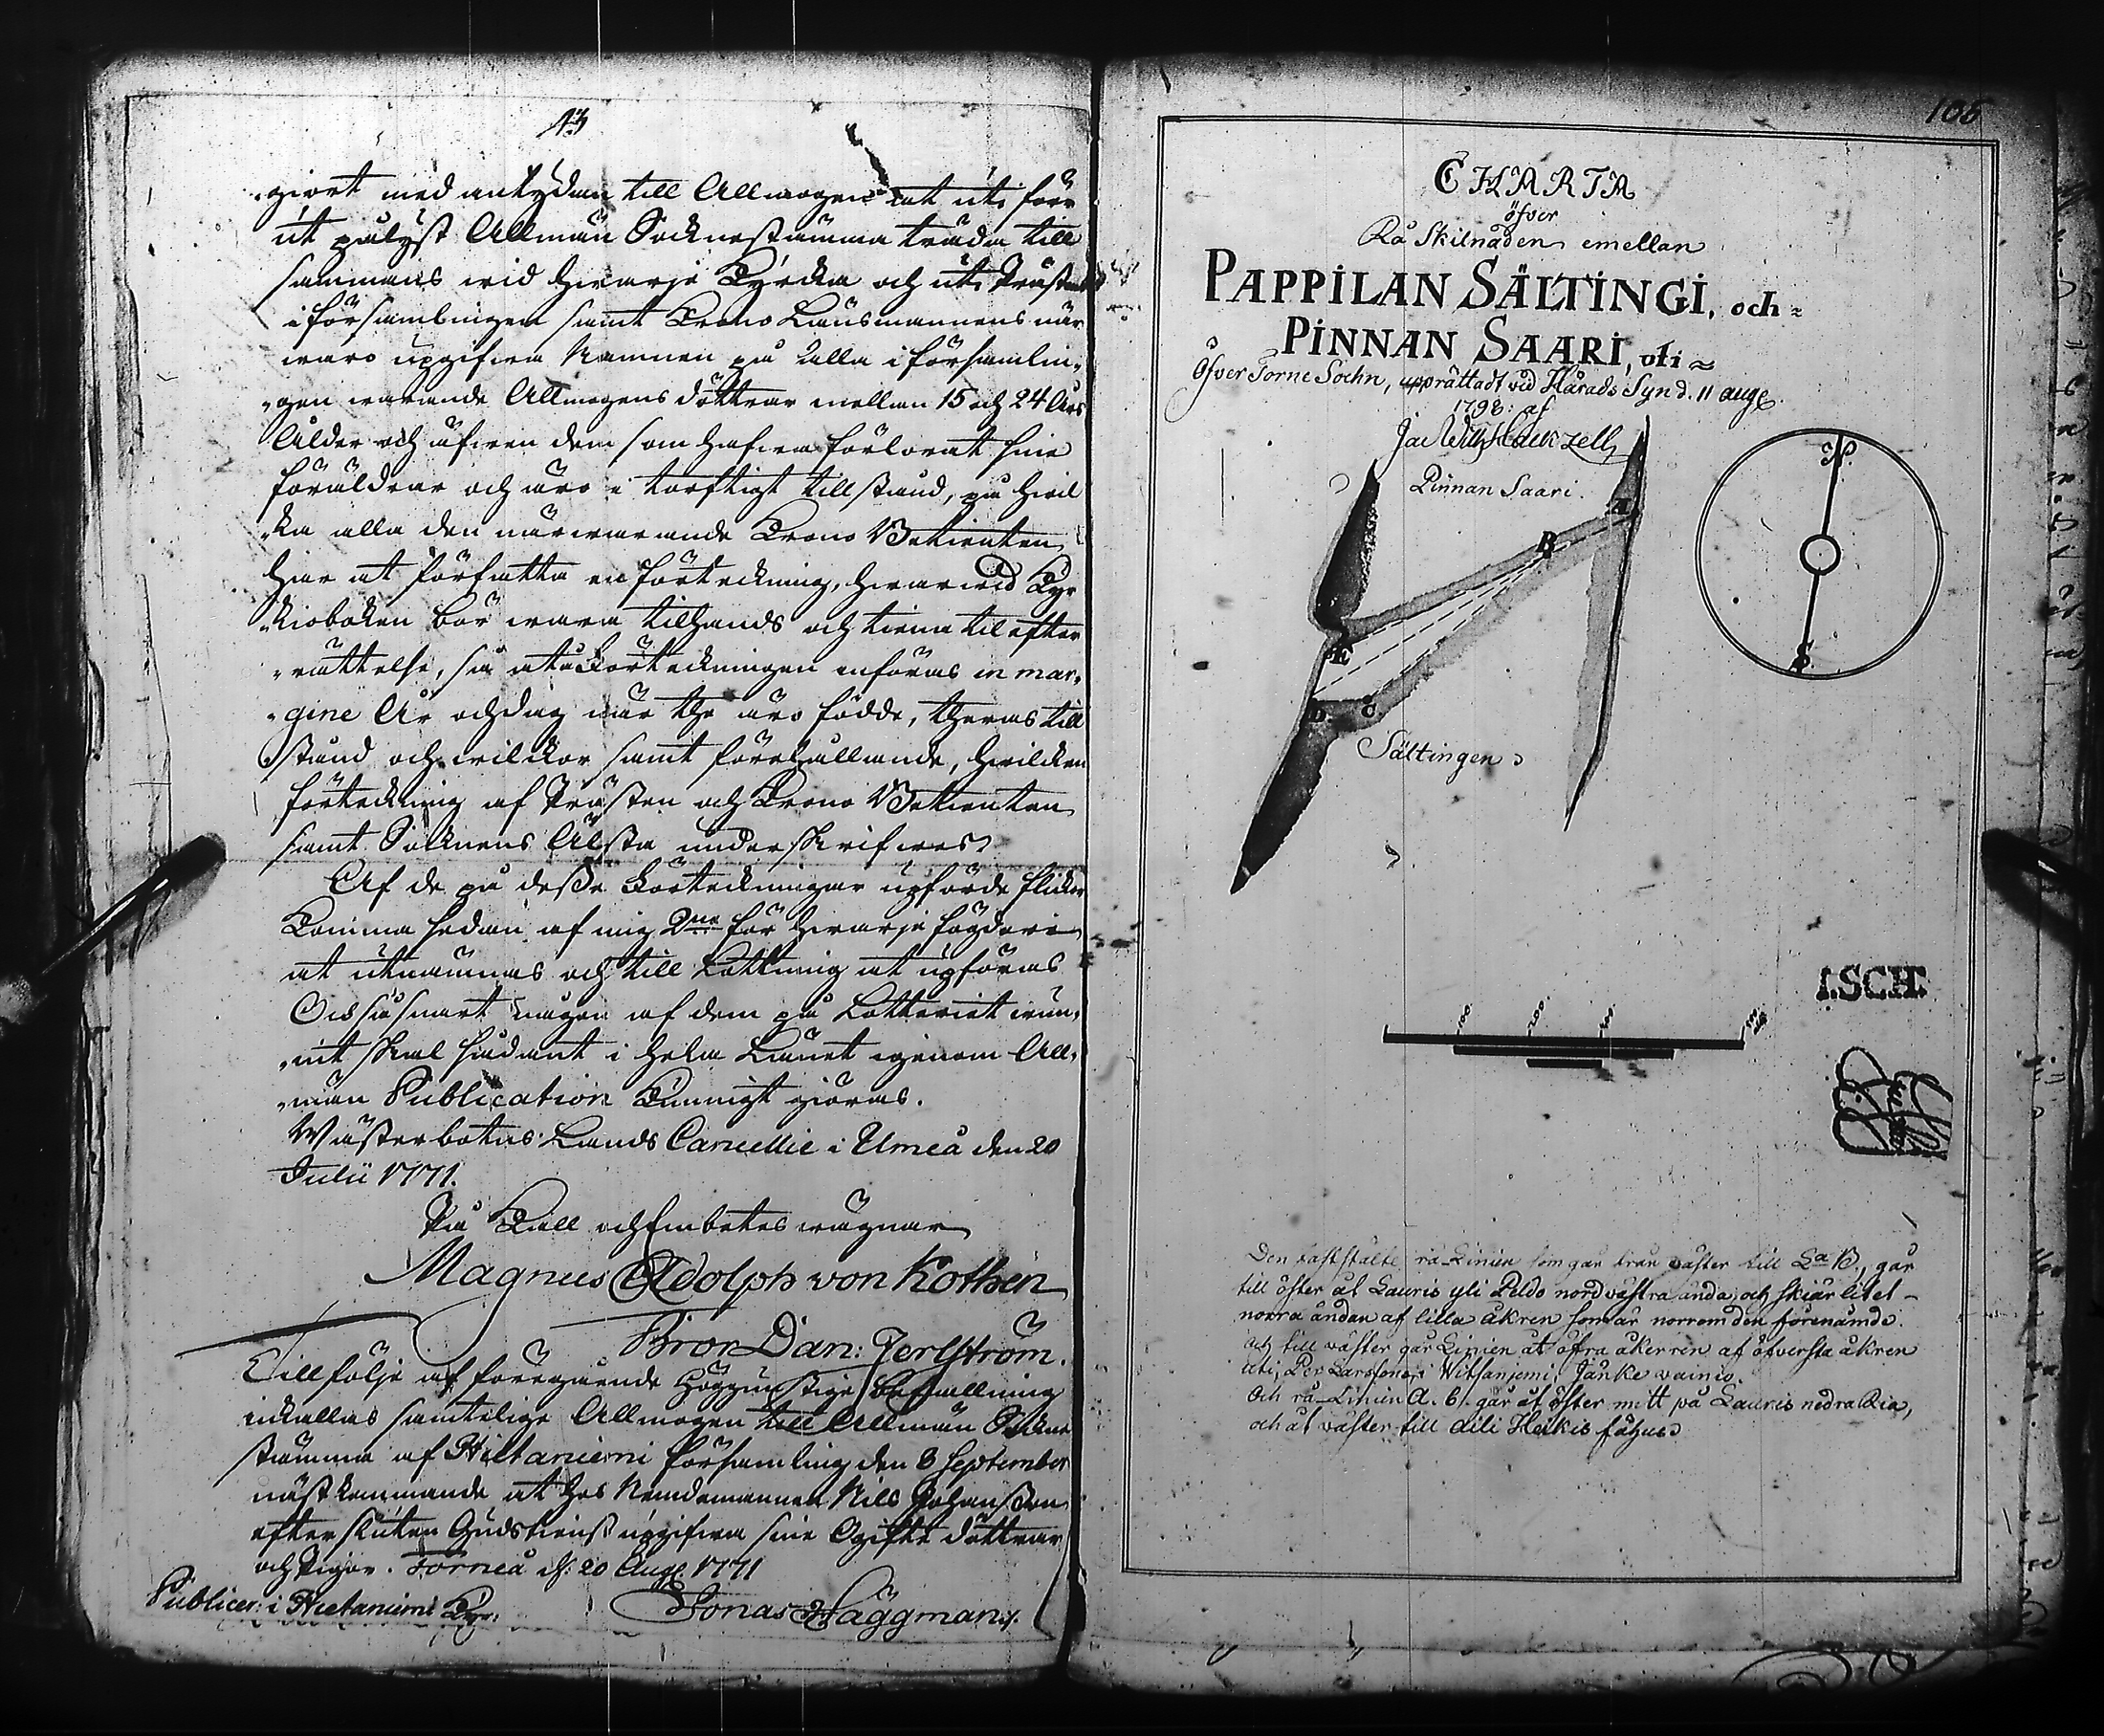 13
giort med antydan till Allmogen at uti förr
ut pålyst Allmän Socknestämma träda till
sammans wid hwarje Kyrcka och uti Prästens
i församlingen samt Crono Länsmannens när
waro upgifwa Namnen på alla i församlin„
„gen warande Allmogens döttrar mellan 15 och 24 Års
Ålder och äfwen dem som hafwa förlorat sina
föräldrar och äro i torftigt tillstånd, på hwil
„ka alla den närwarande Crono Betienten
har at författa en förteckning, hwarwid Kyr
„kioboken bör wara tilhands och tiena til efter
„rättelse, så at förteckningen införas in mar„
„gine År och dag när the äro födde, theras till
stånd och wilckor samt förehållande, hwilcken
förteckning af Prästen och Crono Betienten
samt Socknens Älsta underskrifwes
Af de på desse förteckningar upförde flickor
komma sedan af mig 2ne för hwarje fögderie
at utnämnas och till Lottning at upföras
Och så snart någon af dem på Lotteriet wun„
„nit skal sådant i hela Länet igenom All„
„män Publication kunnigt giöras.
Wästerbotns Lands Cancellie i Umeå den 20
Julii 1771.
På Kall och Embetes wägnar
Magnus Adolph von Kothen
Bror Dan: Jerlström.
Till följe af föregående Höggunstige befallning
inkallas samtelige Allmogen till Allmän Sockne
stämma af Hietaniemi församling den 8 September
nästkommande at hos Nämdemannen Nils Johansson
efter sluten Gudstienst upgifwa sine Ogifte döttrar
och Pigor. Torneå d: 20 Aug. 1771
Publicer: i Hietaniemi Kyr:
Jonas Häggman
106
CHARTA
öfver
Rå Skilnaden emellan
PAPPILAN SÄLTINGI, och
PINNAN SAARI, uti
Öfver Torne Sochn, upprättadt vid Härads Syn d. 11 aug.
1798: af
Jac Wilh Hackzell
Pinnan Saari.
N.
A
B
E
D.
C.
S
Sältingen
I.SCH.
100
200
Den fastställte rå-Linien som går från väster till La B., går
till öster åt Lauris yli Peldo nordvästra ända, och skiär litet
norra ändan af lilla åkren som är norr om den förenämde.
och till väster går Linien åt öfra åkerren af öfversta åkren
uti Per Larssons i Witsaniemi Jänke vainio.
Och rå-Linien A. B. går åt öster mitt på Lauris nedra Ria,
och åt väster till Lilli Heikis fähus